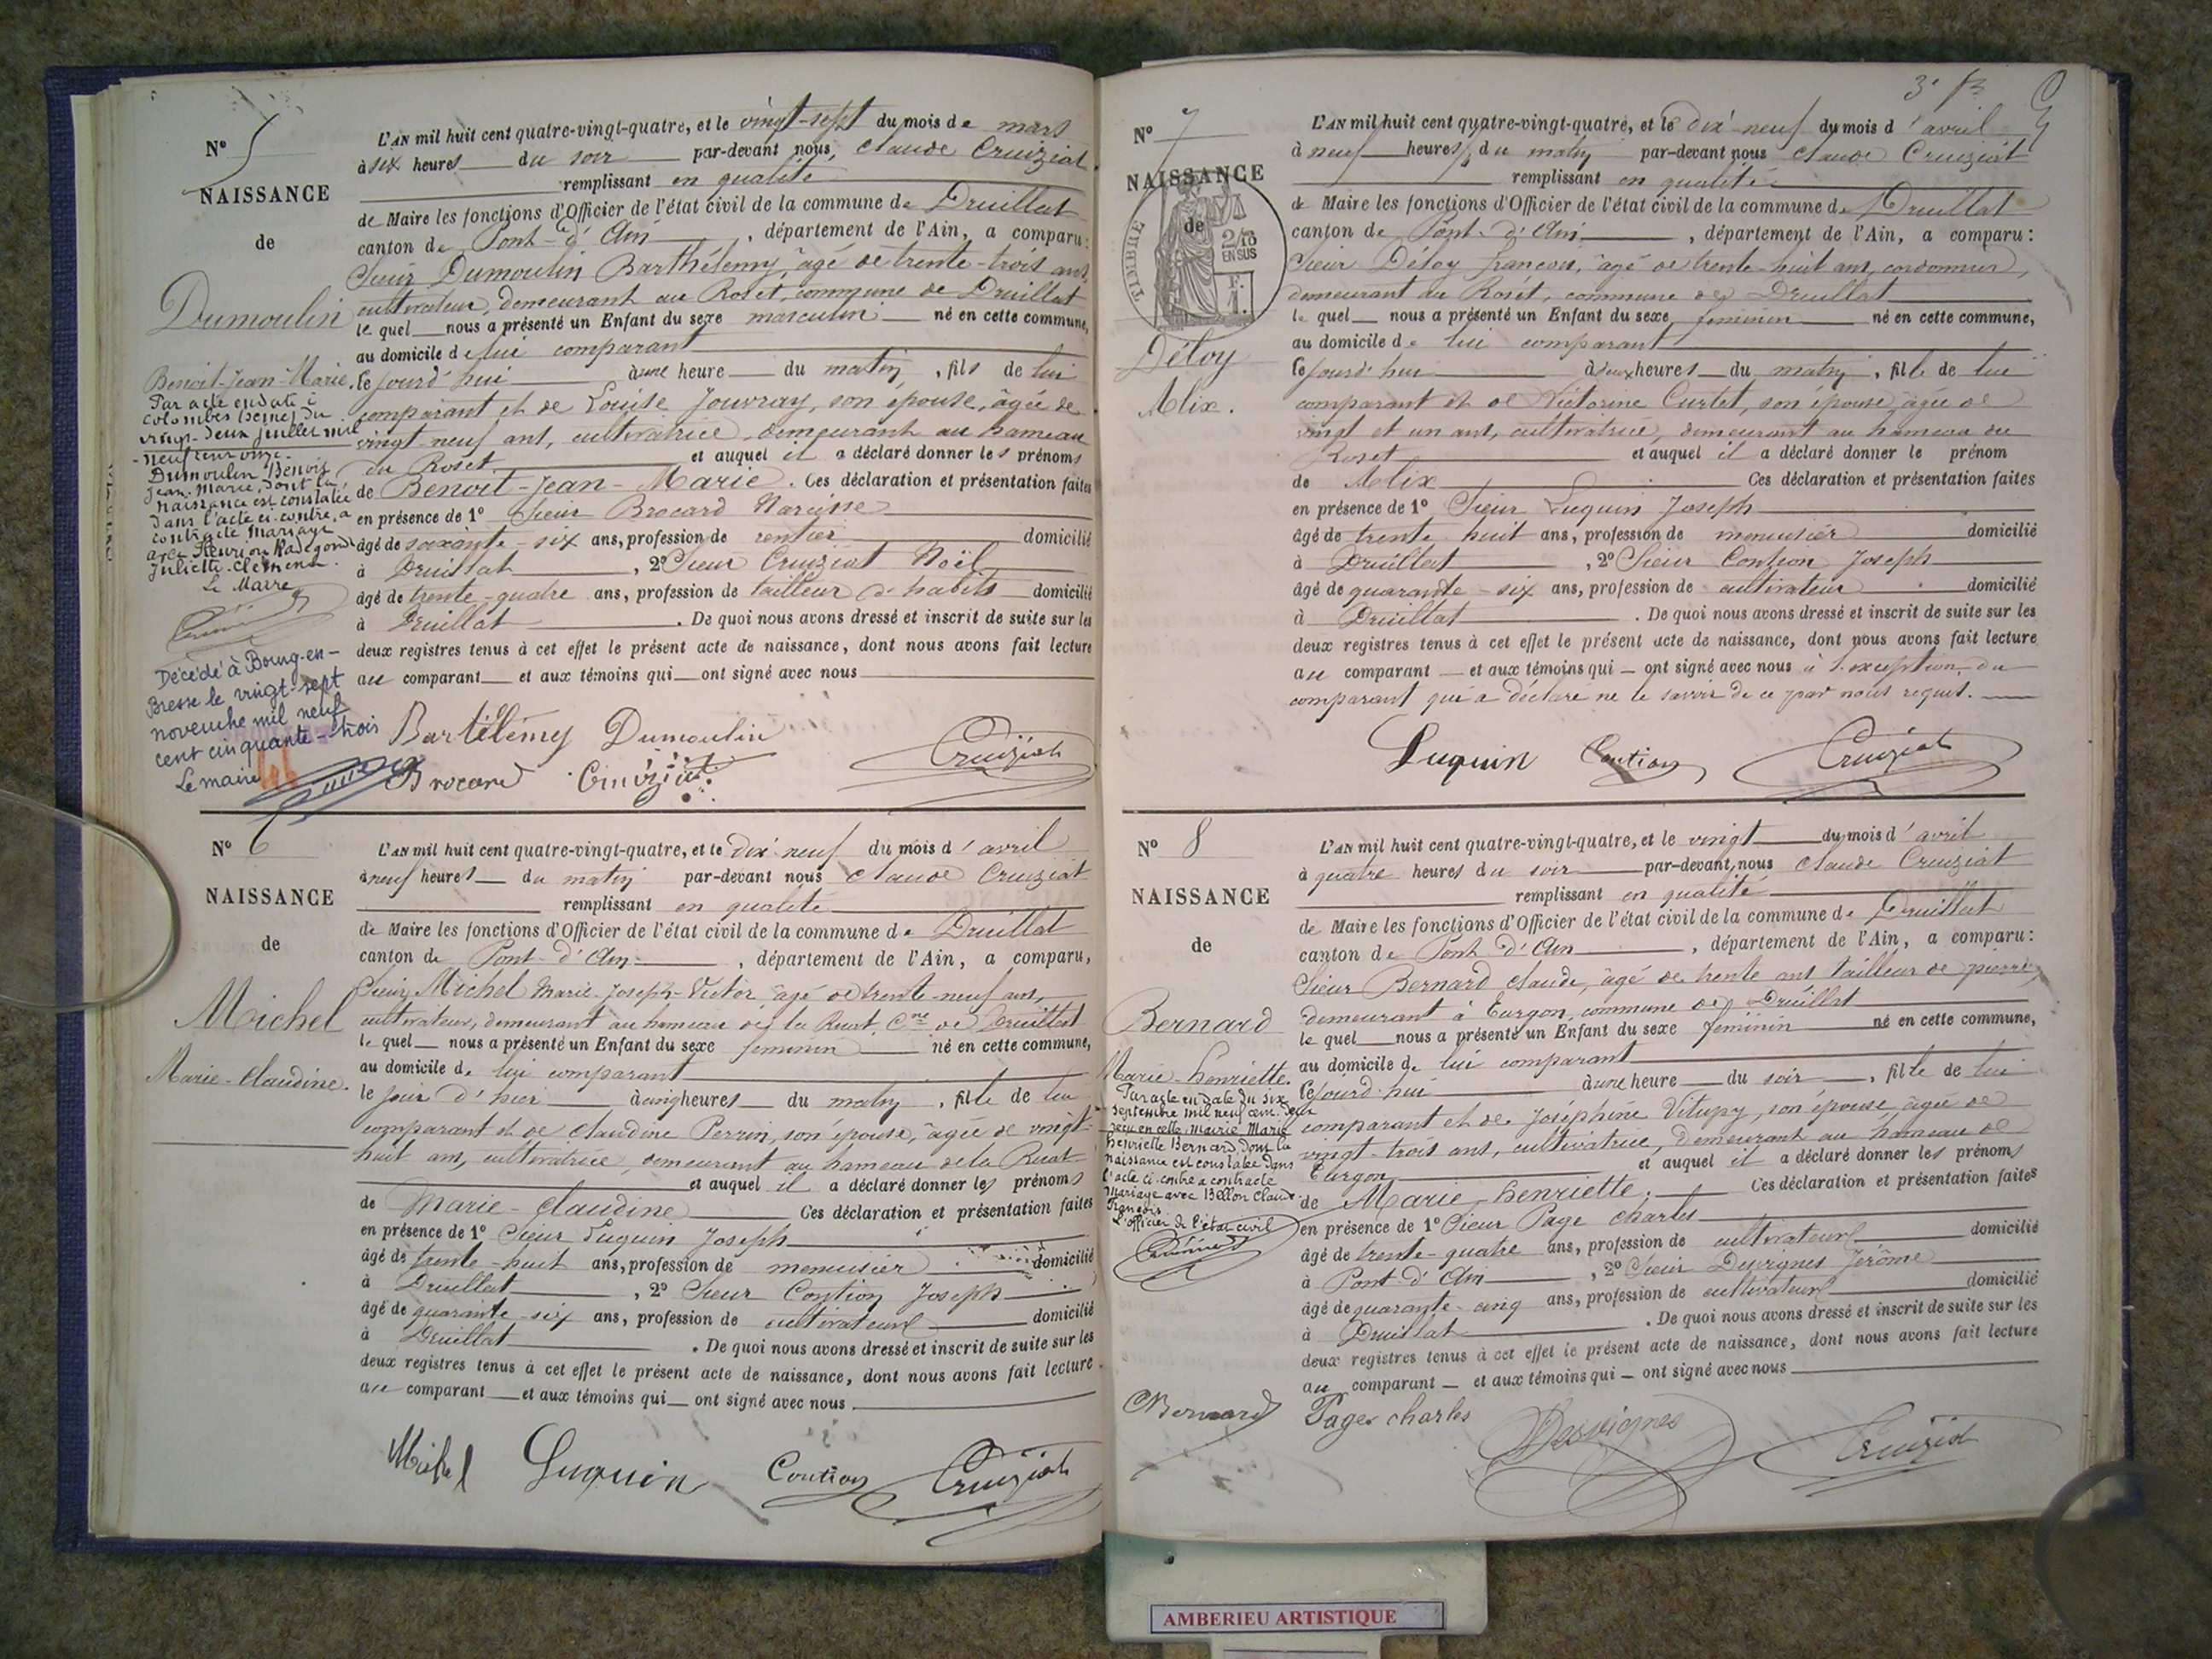 N° 5
NAISSANCE
de
Dumoulin
Benoit-Jean-Marie.
Par acte en date à
Colombes (Seine) du
vingt-deux juillet mil
neuf cent onze.
Dumoulin Benoit
Jean-Marie, dont la
naissance est constatée
dans l'acte ci-contre, a
contracté mariage
avec Henrion Radegonde
Juliette-Clémence.
Le Maire
Décédé à Bourg-en-
Bresse le vingt-sept
novembre mil neuf
cent cinquante-trois
Le maire
L'AN mil huit cent quatre-vingt-quatre, et le vingt-sept du mois de mars
à six heures du soir par-devant nous, Claude Cruiziat
remplissant en qualité
de Maire les fonctions d'Officier de l'état civil de la commune de Druillat
canton de Pont-d'Ain, département de l'Ain, a comparu:
Sieur Dumoulin Barthélemy, âgé de trente-trois ans,
cultivateur, demeurant au Roset, commune de Druillat
le quel nous a présenté un Enfant du sexe masculin né en cette commune,
au domicile de lui comparant
ce jourd'hui à une heure du matin, fils de lui
comparant et de Louise Jouvray, son épouse, âgée de
vingt-neuf ans, cultivatrice, demeurant au hameau
du Roset et auquel il a déclaré donner les prénoms
de Benoit-Jean-Marie. Ces déclaration et présentation faites
en présence de 1° Sieur Brocard Narcisse
âgé de soixante-six ans, profession de rentier domicilié
à Druillat, 2° Sieur Cruiziat Noël
âgé de trente-quatre ans, profession de tailleur d'habits domicilié
à Druillat. De quoi nous avons dressé et inscrit de suite sur les
deux registres tenus à cet effet le présent acte de naissance, dont nous avons fait lecture
au comparant et aux témoins qui ont signé avec nous
Bartélemy Dumoulin
Brocard Cruiziat Cruiziat
N° 6
NAISSANCE
de
Michel
Marie-Claudine.
L'AN mil huit cent quatre-vingt-quatre, et le dix-neuf du mois d'avril
à neuf heures du matin par-devant nous Claude Cruiziat
remplissant en qualité
de Maire les fonctions d'Officier de l'état civil de la commune de Druillat
canton de Pont-d'Ain, département de l'Ain, a comparu,
Sieur Michel Marie-Joseph-Victor âgé de trente-neuf ans,
cultivateur, demeurant au hameau de la Ruat, Cne de Druillat
le quel nous a présenté un Enfant du sexe féminin né en cette commune,
au domicile de lui comparant
le jour d'hier à cinq heures du matin, fille de lui
comparant et de Claudine Perrin, son épouse, âgée de vingt-
huit ans, cultivatrice, demeurant au hameau de la Ruat
et auquel il a déclaré donner les prénoms
de Marie-Claudine Ces déclaration et présentation faites
en présence de 1° Sieur Luquin Joseph
âgé de trente-huit ans, profession de menuisier domicilié
à Druillat, 2° Sieur Contion Joseph
âgé de quarante-six ans, profession de cultivateur domicilié
à Druillat. De quoi nous avons dressé et inscrit de suite sur les
deux registres tenus à cet effet le présent acte de naissance, dont nous avons fait lecture
au comparant et aux témoins qui ont signé avec nous.
Michel Luquin Contion Cruiziat
N° 7
NAISSANCE
de
TIMBRE
2/10
EN SUS
F.
1.
Déloy
Alix.
L'AN mil huit cent quatre-vingt-quatre, et le dix-neuf du mois d'avril
à neuf heures du matin par-devant nous Claude Cruiziat
remplissant en qualité
de Maire les fonctions d'Officier de l'état civil de la commune de Druillat
canton de Pont-d'Ain, département de l'Ain, a comparu:
Sieur Déloy françois, âgé de trente-huit ans, cordonnier,
demeurant au Roset, commune de Druillat
le quel nous a présenté un Enfant du sexe féminin né en cette commune,
au domicile de lui comparant
ce jourd'hui à deux heures du matin, fille de lui
comparant et de Victorine Curtet, son épouse, âgée de
vingt et un ans, cultivatrice, demeurant au hameau du
Roset et auquel il a déclaré donner le prénom
de Alix Ces déclaration et présentation faites
en présence de 1° Sieur Luquin Joseph
âgé de trente huit ans, profession de menuisier domicilié
à Druillat, 2° Sieur Contion Joseph
âgé de quarante-six ans, profession de cultivateur domicilié
à Druillat. De quoi nous avons dressé et inscrit de suite sur les
deux registres tenus à cet effet le présent acte de naissance, dont nous avons fait lecture
au comparant et aux témoins qui ont signé avec nous à l'exception du
comparant qui a déclaré ne le savoir de ce par nous requis.
Luquin Contion Cruiziat
N° 8
NAISSANCE
de
Bernard
Marie-henriette.
Par acte en date du six
septembre mil neuf cent deux
reçu en cette mairie Marie
henriette Bernard dont la
naissance est constatée dans
l'acte ci-contre a contracté
mariage avec Bellon Claude
François.
L'officier de l'état civil
L'AN mil huit cent quatre-vingt-quatre, et le vingt du mois d'avril
à quatre heures du soir par-devant nous Claude Cruiziat
remplissant en qualité
de Maire les fonctions d'Officier de l'état civil de la commune de Druillat
canton de Pont-d'Ain, département de l'Ain, a comparu:
Sieur Bernard Claude, âgé de trente ans tailleur de pierres,
demeurant à Turgon, commune de Druillat
le quel nous a présenté un Enfant du sexe féminin né en cette commune,
au domicile de lui comparant
ce jourd'hui à une heure du soir, fille de lui
comparant et de Joséphine Vitupy, son épouse âgée de
vingt-trois ans, cultivatrice, demeurant au hameau de
Turgon et auquel il a déclaré donner les prénoms
de Marie-henriette. Ces déclaration et présentation faites
en présence de 1° Sieur Page Charles
âgé de trente-quatre ans, profession de cultivateur domicilié
à Pont-d'Ain, 2° Sieur Duvignes Jérôme
âgé de quarante-cinq ans, profession de cultivateur domicilié
à Druillat. De quoi nous avons dressé et inscrit de suite sur les
deux registres tenus à cet effet le présent acte de naissance, dont nous avons fait lecture
au comparant et aux témoins qui ont signé avec nous
Bernard Pages charles Desvignes Cruiziat
AMBERIEU ARTISTIQUE